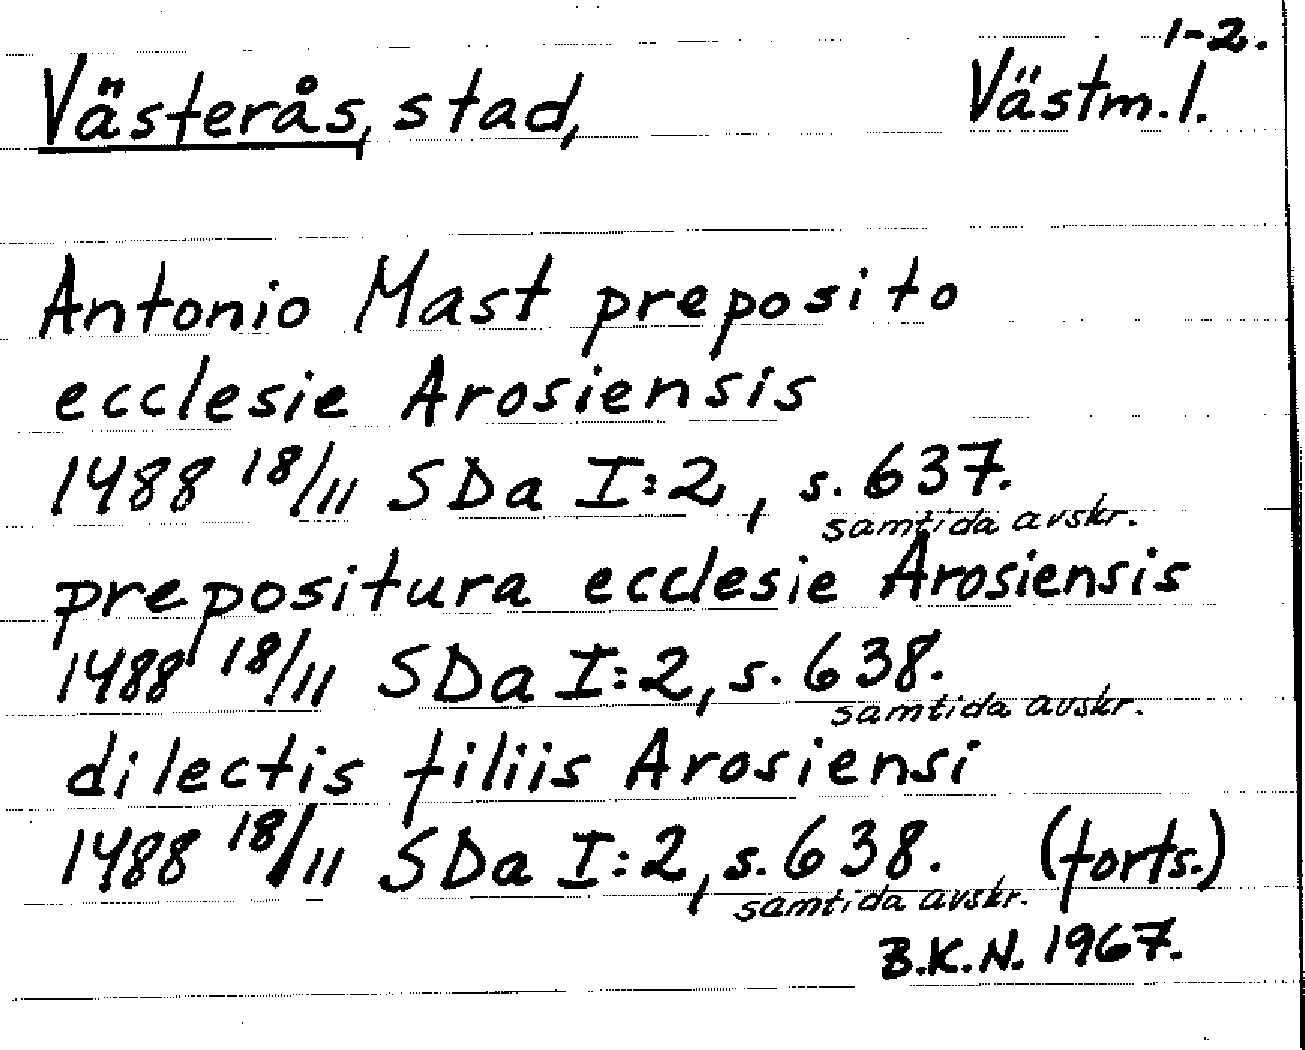 1-2.
Västerås, stad, Västm.l.
Antonio Mast preposito
ecclesie Arosiensis
1488 18/11 SDa I:2, s. 637.
samtida avskr.
prepositura ecclesie Arosiensis
1488 18/11 SDa I:2, s. 638.
samtida avskr.
dilectis filiis Arosiensi
1488 18/11 SDa I:2, s. 638. (forts.)
samtida avskr.
B.K.N. 1967.